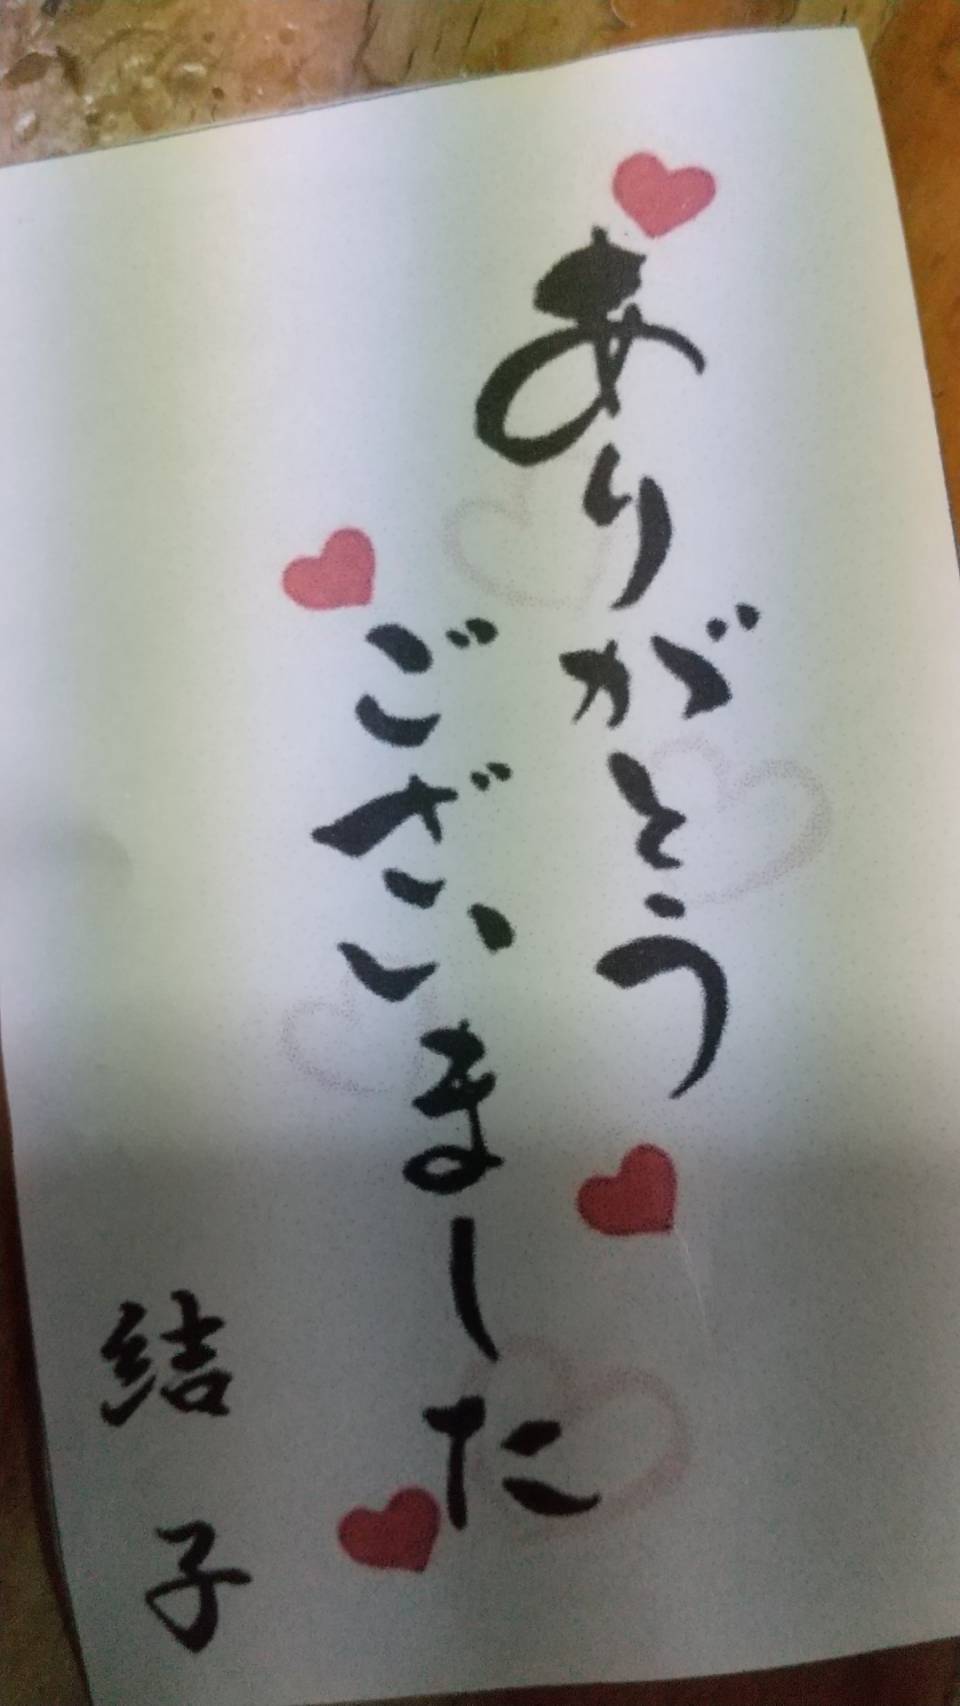 ありがとう
ございました
結子